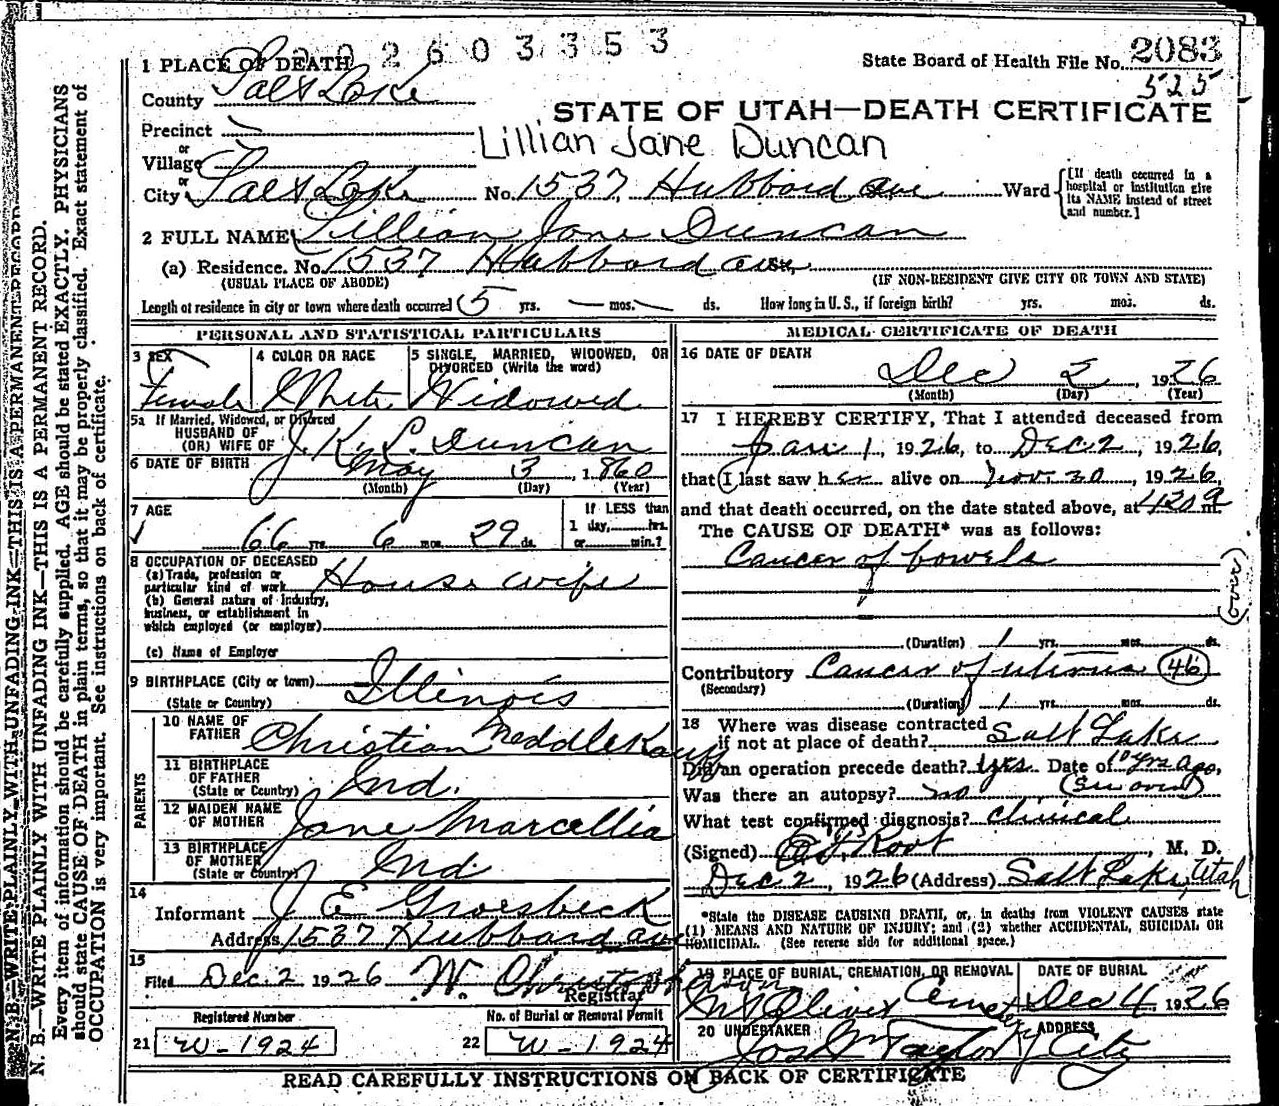 2 6 0 3 3 5 3
State Board of Health File No. 2083
525
1 PLACE OF DEATH
County Salt Lake
STATE OF UTAH—DEATH CERTIFICATE
Precinct
or
Lillian Jane Duncan
Village
or
City Salt Lake No. 1537 Hubbard ave Ward [If death occurred in a hospital or institution give its NAME instead of street and number.]
2 FULL NAME Lillian Jane Duncan
(a) Residence. No. 1537 Hubbard ave St.,
(USUAL PLACE OF ABODE) (IF NON-RESIDENT GIVE CITY OR TOWN AND STATE)
Length of residence in city or town where death occurred 5 yrs. — mos. — ds. How long in U. S., if foreign birth? yrs. mos. ds.
PERSONAL AND STATISTICAL PARTICULARS
3 SEX
Female
4 COLOR OR RACE
White
5 SINGLE, MARRIED, WIDOWED, OR
DIVORCED (Write the word)
Widowed
5a If Married, Widowed, or Divorced
HUSBAND OF
(OR) WIFE OF J. K. L. Duncan
6 DATE OF BIRTH May 3, 1860
(Month) (Day) (Year)
7 AGE
66 yrs. 6 mos. 29 ds.
If LESS than
1 day, hrs.
or min.?
8 OCCUPATION OF DECEASED
(a) Trade, profession or
particular kind of work House wife
(b) General nature of Industry,
business, or establishment in
which employed (or employer)
(c) Name of Employer
9 BIRTHPLACE (City or town)
(State or Country) Illinois
PARENTS
10 NAME OF
FATHER Christian Meddlekauff
11 BIRTHPLACE
OF FATHER
(State or Country) Ind.
12 MAIDEN NAME
OF MOTHER Jane Marcellia
13 BIRTHPLACE
OF MOTHER
(State or Country) Ind.
14
Informant J E Groesbeck
Address 1537 Hubbard ave
15
Filed Dec. 2 1926 W. Christopherson
Registrar
Registered Number
21 W-1924
No. of Burial or Removal Permit
22 W-1924
MEDICAL CERTIFICATE OF DEATH
16 DATE OF DEATH
Dec 2, 1926
(Month) (Day) (Year)
17 I HEREBY CERTIFY, That I attended deceased from
Jan 1, 1926, to Dec. 2, 1926,
that I last saw her alive on Nov. 30, 1926,
and that death occurred, on the date stated above, at 430 a m.
The CAUSE OF DEATH* was as follows:
Cancer of bowels
(Duration) 1 yrs. mos. ds.
Contributory Cancer of uterus 46
(Secondary)
(Duration) 1 yrs. mos. ds.
18 Where was disease contracted
if not at place of death? Salt Lake
Did an operation precede death? yes Date of 10 yrs ago,
Was there an autopsy? no
What test confirmed diagnosis? clinical
(Signed) E. F. Root, M. D.
Dec 2, 1926 (Address) Salt Lake, Utah
*State the DISEASE CAUSING DEATH, or, in deaths from VIOLENT CAUSES state
(1) MEANS AND NATURE OF INJURY; and (2) whether ACCIDENTAL, SUICIDAL OR
HOMICIDAL. (See reverse side for additional space.)
19 PLACE OF BURIAL, CREMATION, OR REMOVAL
Mt Olivet Cemetery
DATE OF BURIAL
Dec 4, 1926
20 UNDERTAKER
Jos Wm Taylor
ADDRESS
City
READ CAREFULLY INSTRUCTIONS ON BACK OF CERTIFICATE
N. B.—WRITE PLAINLY WITH UNFADING INK—THIS IS A PERMANENT RECORD.
N. B.—WRITE PLAINLY WITH UNFADING INK—THIS IS A PERMANENT RECORD.
Every item of information should be carefully supplied. AGE should be stated EXACTLY. PHYSICIANS
should state CAUSE OF DEATH in plain terms, so that it may be properly classified. Exact statement of
OCCUPATION is very important. See instructions on back of certificate.